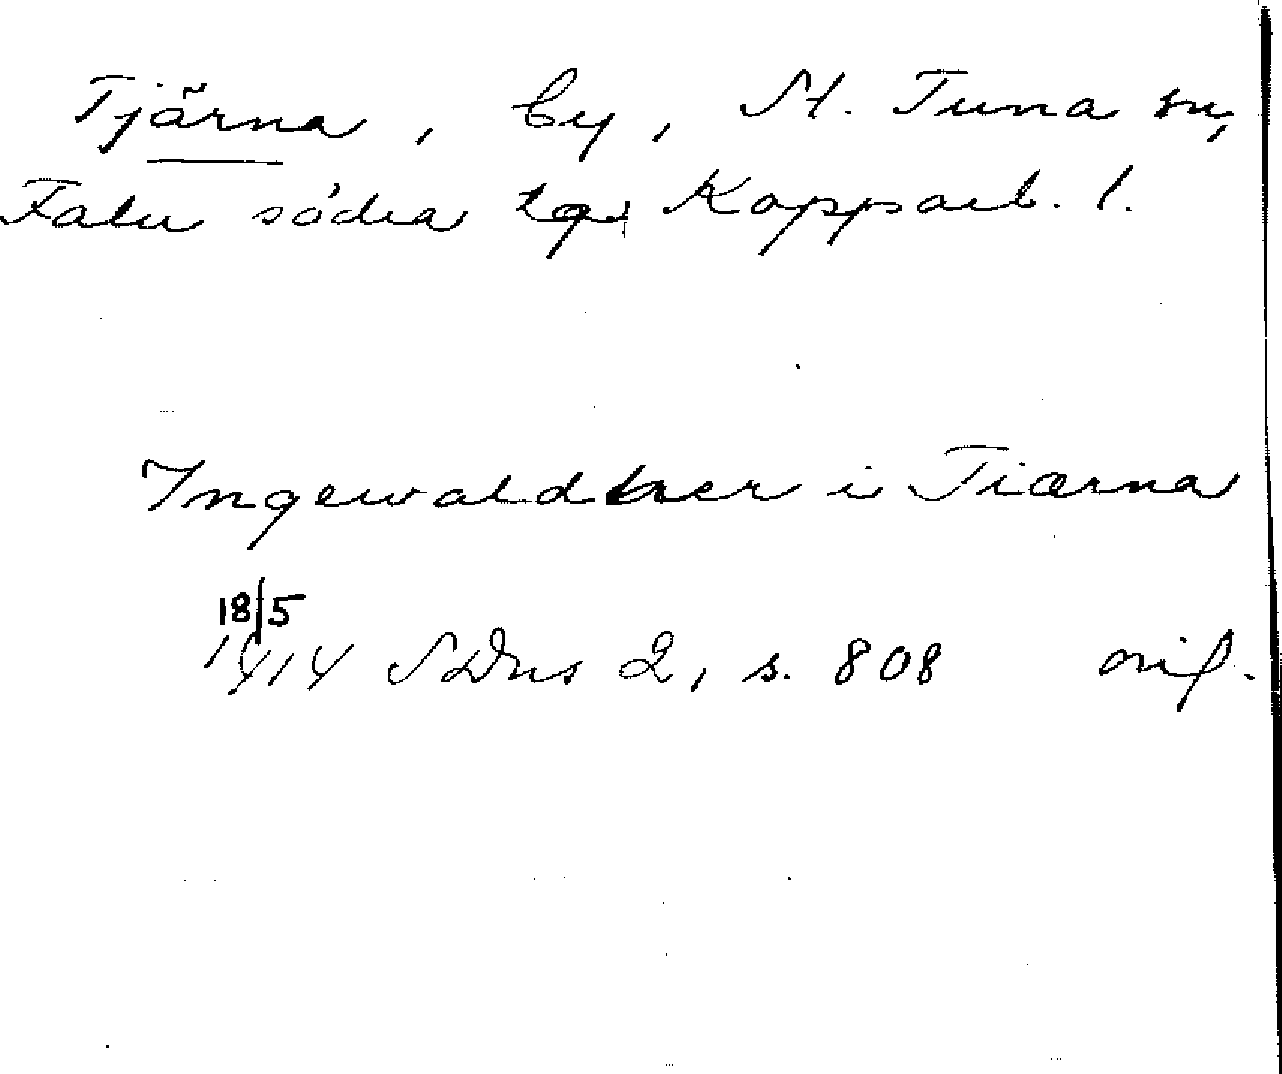 Tjärna, by, St. Tuna sn,
Falu södra tg, Kopparb. l.
Ingewaldær i Tiærna
18/5
1414 SDns 2, s. 808 orig.